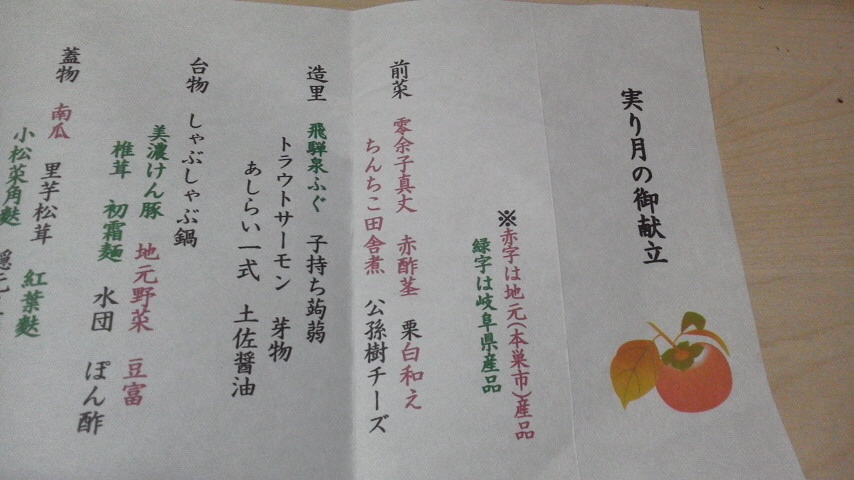 実り月の御献立
※赤字は地元(本巣市)産品
緑字は岐阜県産品
前菜 零余子真丈 赤酢茎 栗白和え
ちんちこ田舎煮 公孫樹チーズ
造里 飛騨泉ふぐ 子持ち蒟蒻
トラウトサーモン 芽物
あしらい一式 土佐醤油
台物 しゃぶしゃぶ鍋
美濃けん豚 地元野菜 豆富
椎茸 初霜麺 水団 ぽん酢
蓋物 南瓜 里芋松茸
小松菜角麩 紅葉麩